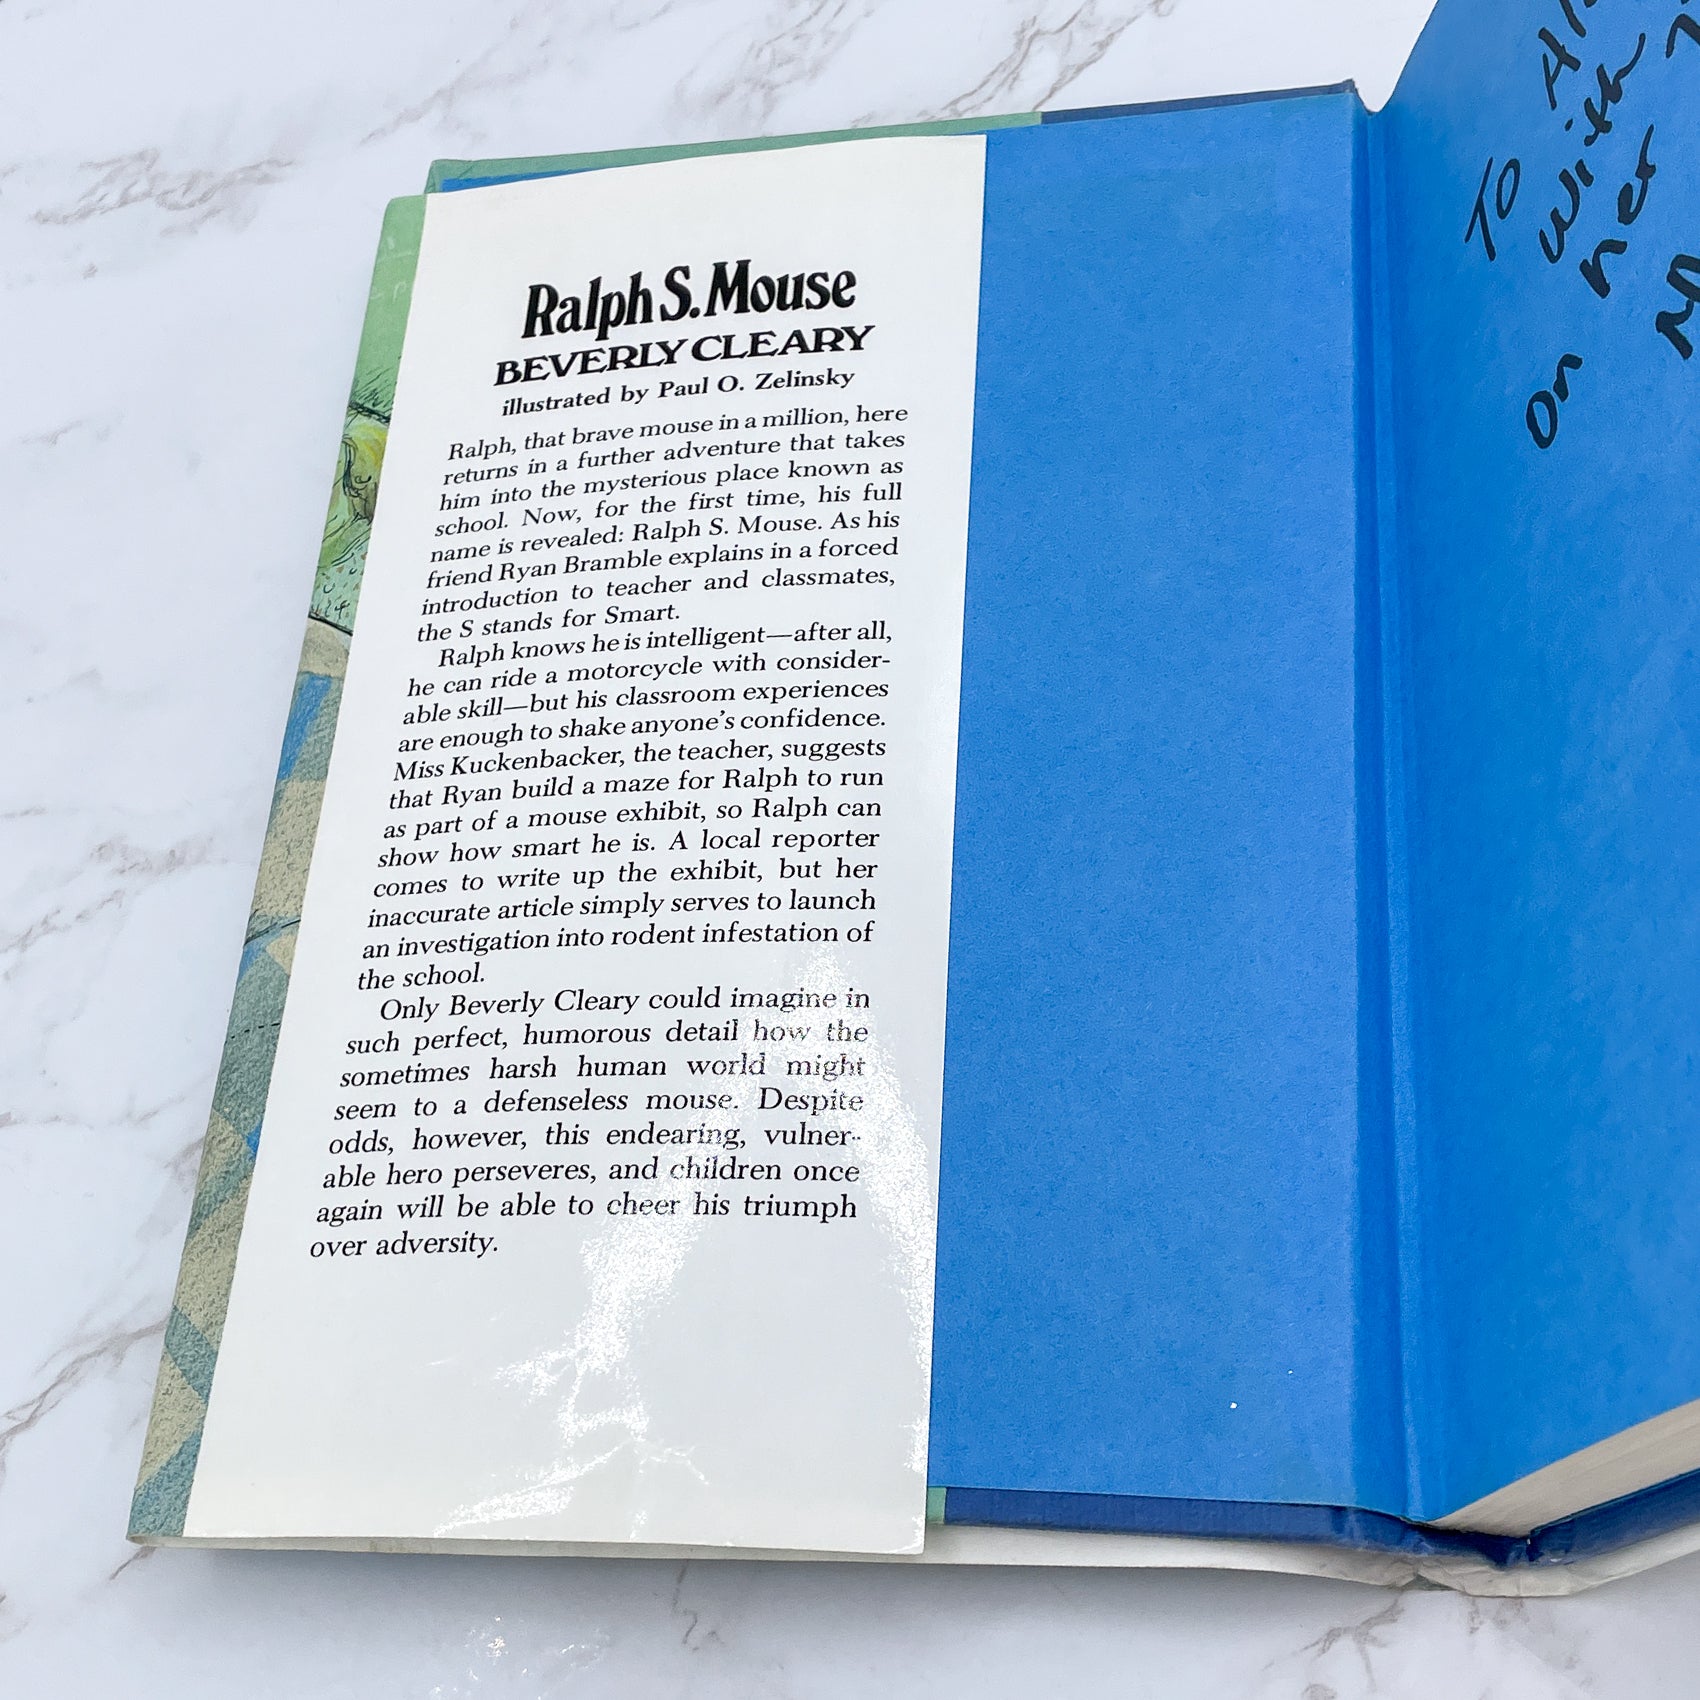 Ralph S. Mouse
BEVERLY CLEARY
illustrated by Paul O. Zelinsky
Ralph, that brave mouse in a million, here
returns in a further adventure that takes
him into the mysterious place known as
school. Now, for the first time, his full
name is revealed: Ralph S. Mouse. As his
friend Ryan Bramble explains in a forced
introduction to teacher and classmates,
the S stands for Smart.
Ralph knows he is intelligent—after all,
he can ride a motorcycle with consider-
able skill—but his classroom experiences
are enough to shake anyone's confidence.
Miss Kuckenbacker, the teacher, suggests
that Ryan build a maze for Ralph to run
as part of a mouse exhibit, so Ralph can
show how smart he is. A local reporter
comes to write up the exhibit, but her
inaccurate article simply serves to launch
an investigation into rodent infestation of
the school.
Only Beverly Cleary could imagine in
such perfect, humorous detail how the
sometimes harsh human world might
seem to a defenseless mouse. Despite
odds, however, this endearing, vulner-
able hero perseveres, and children once
again will be able to cheer his triumph
over adversity.
To
With
on her